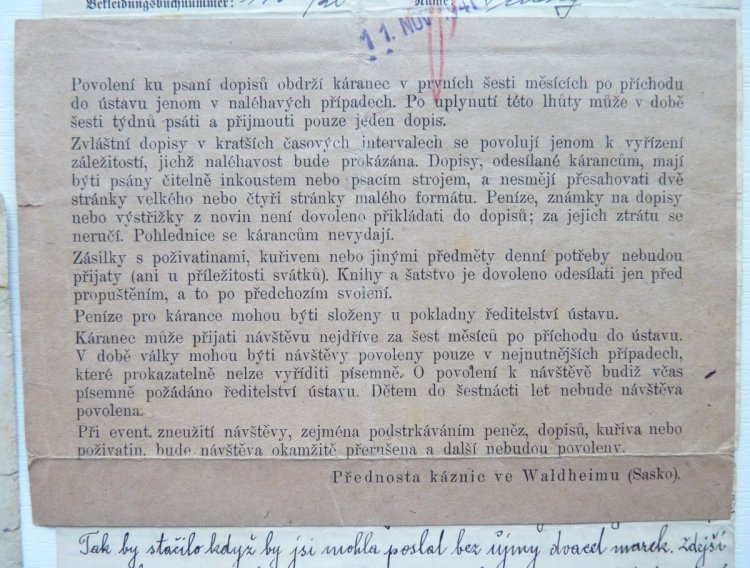 Bekleidungsbuchnummer:
Name:
11. NOV. 1941
Povolení ku psaní dopisů obdrží káranec v prvních šesti měsících po příchodu
do ústavu jenom v naléhavých případech. Po uplynutí této lhůty může v době
šesti týdnů psáti a přijmouti pouze jeden dopis.
Zvláštní dopisy v kratších časových intervalech se povolují jenom k vyřízení
záležitostí, jichž naléhavost bude prokázána. Dopisy, odesílané kárancům, mají
býti psány čitelně inkoustem nebo psacím strojem, a nesmějí přesahovati dvě
stránky velkého nebo čtyři stránky malého formátu. Peníze, známky na dopisy
nebo výstřižky z novin není dovoleno přikládati do dopisů; za jejich ztrátu se
neručí. Pohlednice se kárancům nevydají.
Zásilky s poživatinami, kuřivem nebo jinými předměty denní potřeby nebudou
přijaty (ani u příležitosti svátků). Knihy a šatstvo je dovoleno odesílati jen před
propuštěním, a to po předchozím svolení.
Peníze pro kárance mohou býti složeny u pokladny ředitelství ústavu.
Káranec může přijati návštěvu nejdříve za šest měsíců po příchodu do ústavu.
V době války mohou býti návštěvy povoleny pouze v nejnutnějších případech,
které prokazatelně nelze vyříditi písemně. O povolení k návštěvě budiž včas
písemně požádáno ředitelství ústavu. Dětem do šestnácti let nebude návštěva
povolena.
Při event. zneužití návštěvy, zejména podstrkáváním peněz, dopisů, kuřiva nebo
poživatin, bude návštěva okamžitě přerušena a další nebudou povoleny.
Přednosta káznic ve Waldheimu (Sasko).
Tak by stačilo když by jsi mohla poslat bez újmy dvacet marek. Zdejší